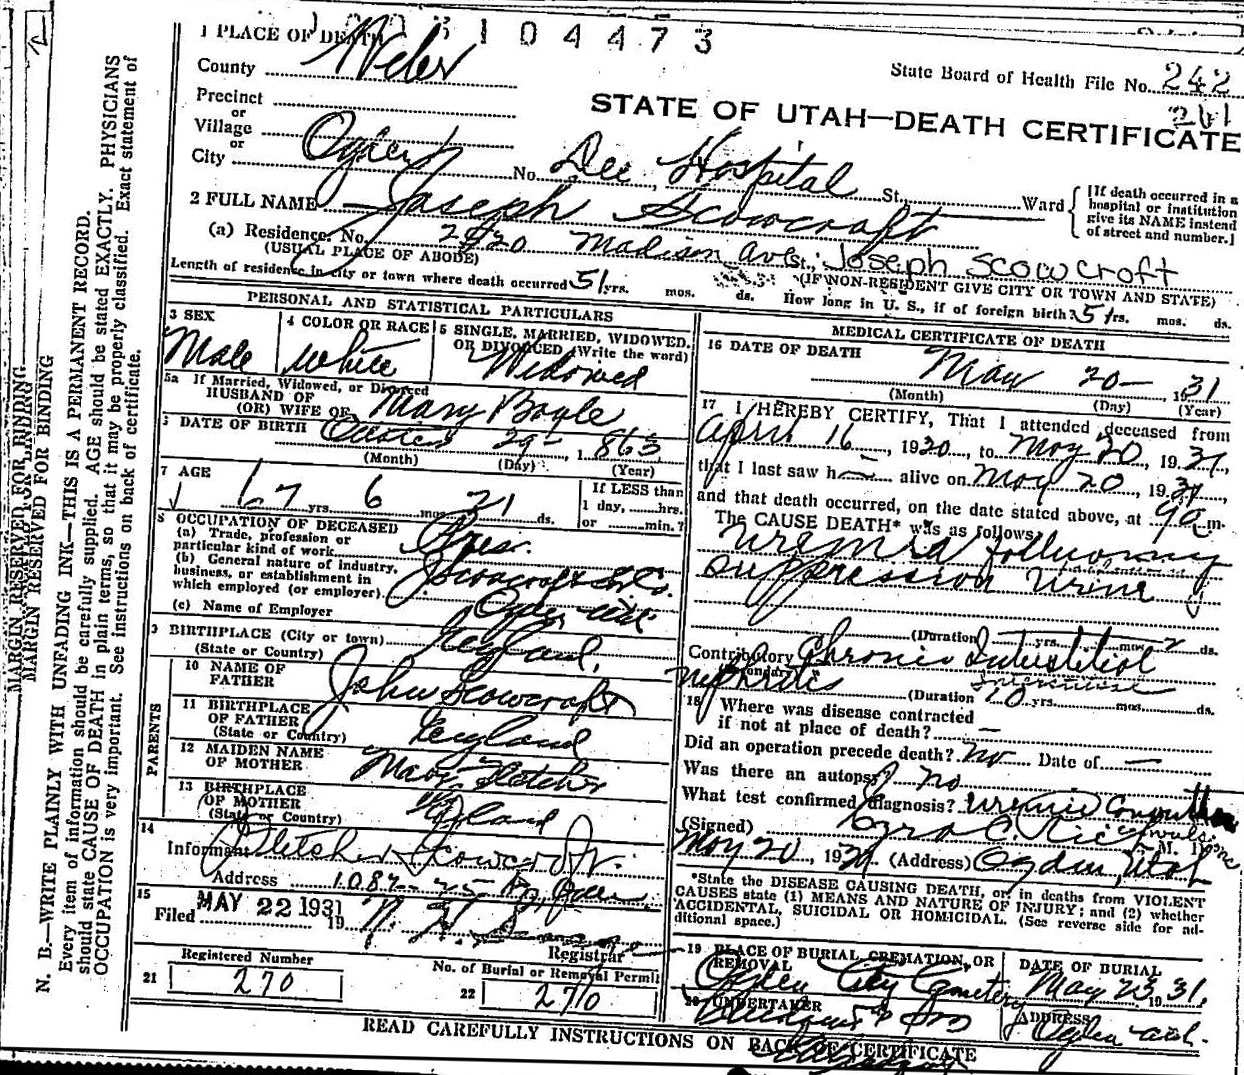 1 PLACE OF DEATH
3104473
County Weber
State Board of Health File No. 242
241
Precinct
or
Village
or
City Ogden
STATE OF UTAH—DEATH CERTIFICATE
No. Dee Hospital St. Ward
[If death occurred in a
hospital or institution
give its NAME instead
of street and number.]
2 FULL NAME Joseph Scowcroft
(a) Residence. No. 2420 Madison Ave St., Joseph Scowcroft
(USUAL PLACE OF ABODE)
(IF NON-RESIDENT GIVE CITY OR TOWN AND STATE)
Length of residence in city or town where death occurred 51 yrs. mos. ds. How long in U. S., if of foreign birth? 51 yrs. mos. ds.
PERSONAL AND STATISTICAL PARTICULARS
3 SEX
Male
4 COLOR OR RACE
White
5 SINGLE, MARRIED, WIDOWED,
OR DIVORCED (Write the word)
Widowed
5a If Married, Widowed, or Divorced
HUSBAND OF
(OR) WIFE OF Mary Bogle
6 DATE OF BIRTH October 29 - 1863
(Month) (Day) (Year)
7 AGE
67 yrs. 6 mos. 21 ds.
If LESS than
1 day, hrs.
or min.?
8 OCCUPATION OF DECEASED
(a) Trade, profession or
particular kind of work Pres.
(b) General nature of industry,
business, or establishment in
which employed (or employer) J Scowcroft & S. Co.
(c) Name of Employer Ogden Utah
9 BIRTHPLACE (City or town)
(State or Country) England.
PARENTS
10 NAME OF
FATHER John Scowcroft
11 BIRTHPLACE
OF FATHER
(State or Country) England
12 MAIDEN NAME
OF MOTHER Mary Fletcher
13 BIRTHPLACE
OF MOTHER
(State or Country) England
14
Informant Fletcher Scowcroft.
Address 1087 - 25 Ogden
15
Filed MAY 22 1931 19
Registrar
Registered Number
21 270
No. of Burial or Removal Permit
22 270
MEDICAL CERTIFICATE OF DEATH
16 DATE OF DEATH
May 20 - 1931
(Month) (Day) (Year)
17 I HEREBY CERTIFY, That I attended deceased from
April 16, 1930, to May 20, 1931,
that I last saw h alive on May 20, 1931,
and that death occurred, on the date stated above, at 9 a m.
The CAUSE DEATH* was as follows:
Uremia following
suppression urine
(Duration) yrs. mos. 2 ds.
Contributory Chronic Interstitial
(Secondary) Interstitial
Nephritis
(Duration 20 yrs. mos. ds.
18 Where was disease contracted
if not at place of death? —
Did an operation precede death? No Date of —
Was there an autopsy? No
What test confirmed diagnosis? Uremic
(Signed) Ezra C. Rich M. D.
May 20, 19 (Address) Ogden, Utah
*State the DISEASE CAUSING DEATH, or, in deaths from VIOLENT
CAUSES state (1) MEANS AND NATURE OF INJURY; and (2) whether
ACCIDENTAL, SUICIDAL OR HOMICIDAL. (See reverse side for ad-
ditional space.)
19 PLACE OF BURIAL CREMATION, OR
REMOVAL
Ogden City Cemetery
DATE OF BURIAL
May 23 1931,
20 UNDERTAKER
& Son
ADDRESS
Ogden Utah.
READ CAREFULLY INSTRUCTIONS ON BACK OF CERTIFICATE
MARGIN RESERVED FOR BINDING
MARGIN RESERVED FOR BINDING
N. B.—WRITE PLAINLY WITH UNFADING INK—THIS IS A PERMANENT RECORD.
Every item of information should be carefully supplied. AGE should be stated EXACTLY. PHYSICIANS
should state CAUSE OF DEATH in plain terms, so that it may be properly classified. Exact statement of
OCCUPATION is very important. See instructions on back of certificate.